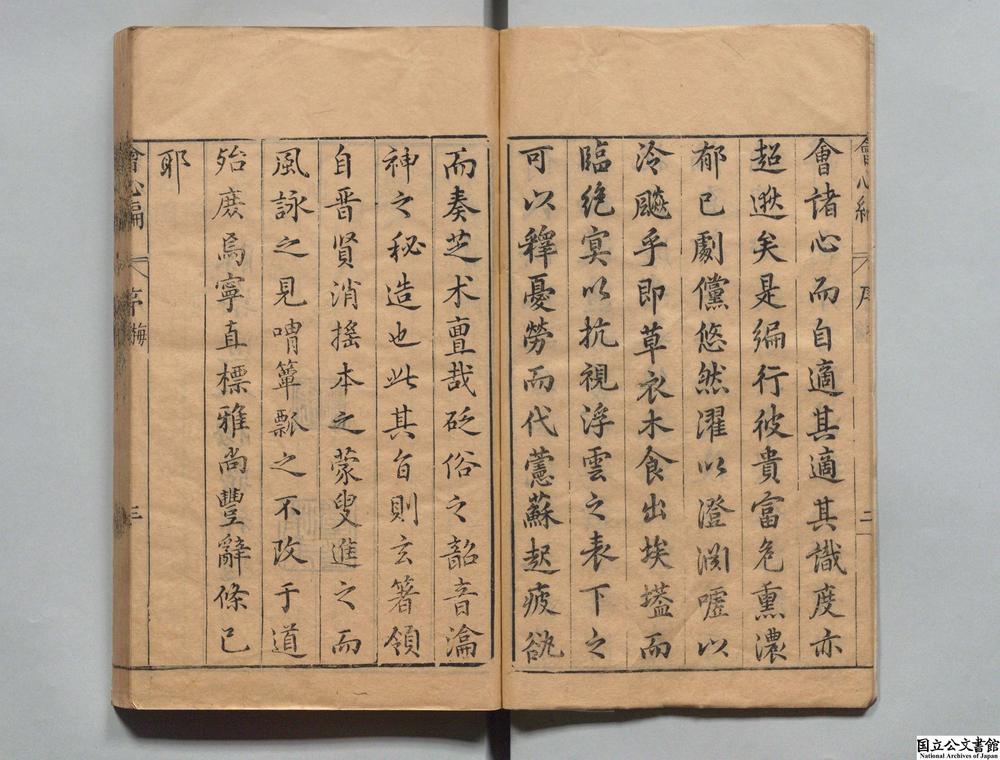 會心編
序
二
會諸心而自適其適其識度亦
超逖矣是編行彼貴富危熏濃
郁已劇儻悠然濯以澄淵噓以
泠飈乎即草衣木食出埃壒而
臨絶冥以抗視浮雲之表下之
可以釋憂勞而代薏蘇起疲欲
而奏芝术亶哉砭俗之韶音瀹
神之秘造也此其旨則玄箸領
自晋賢消搖本之蒙叟進之而
風詠之見喟簞瓢之不改于道
殆庶焉寧直標雅尚豐辭條已
耶
會心編
序
三
国立公文書館
National Archives of Japan